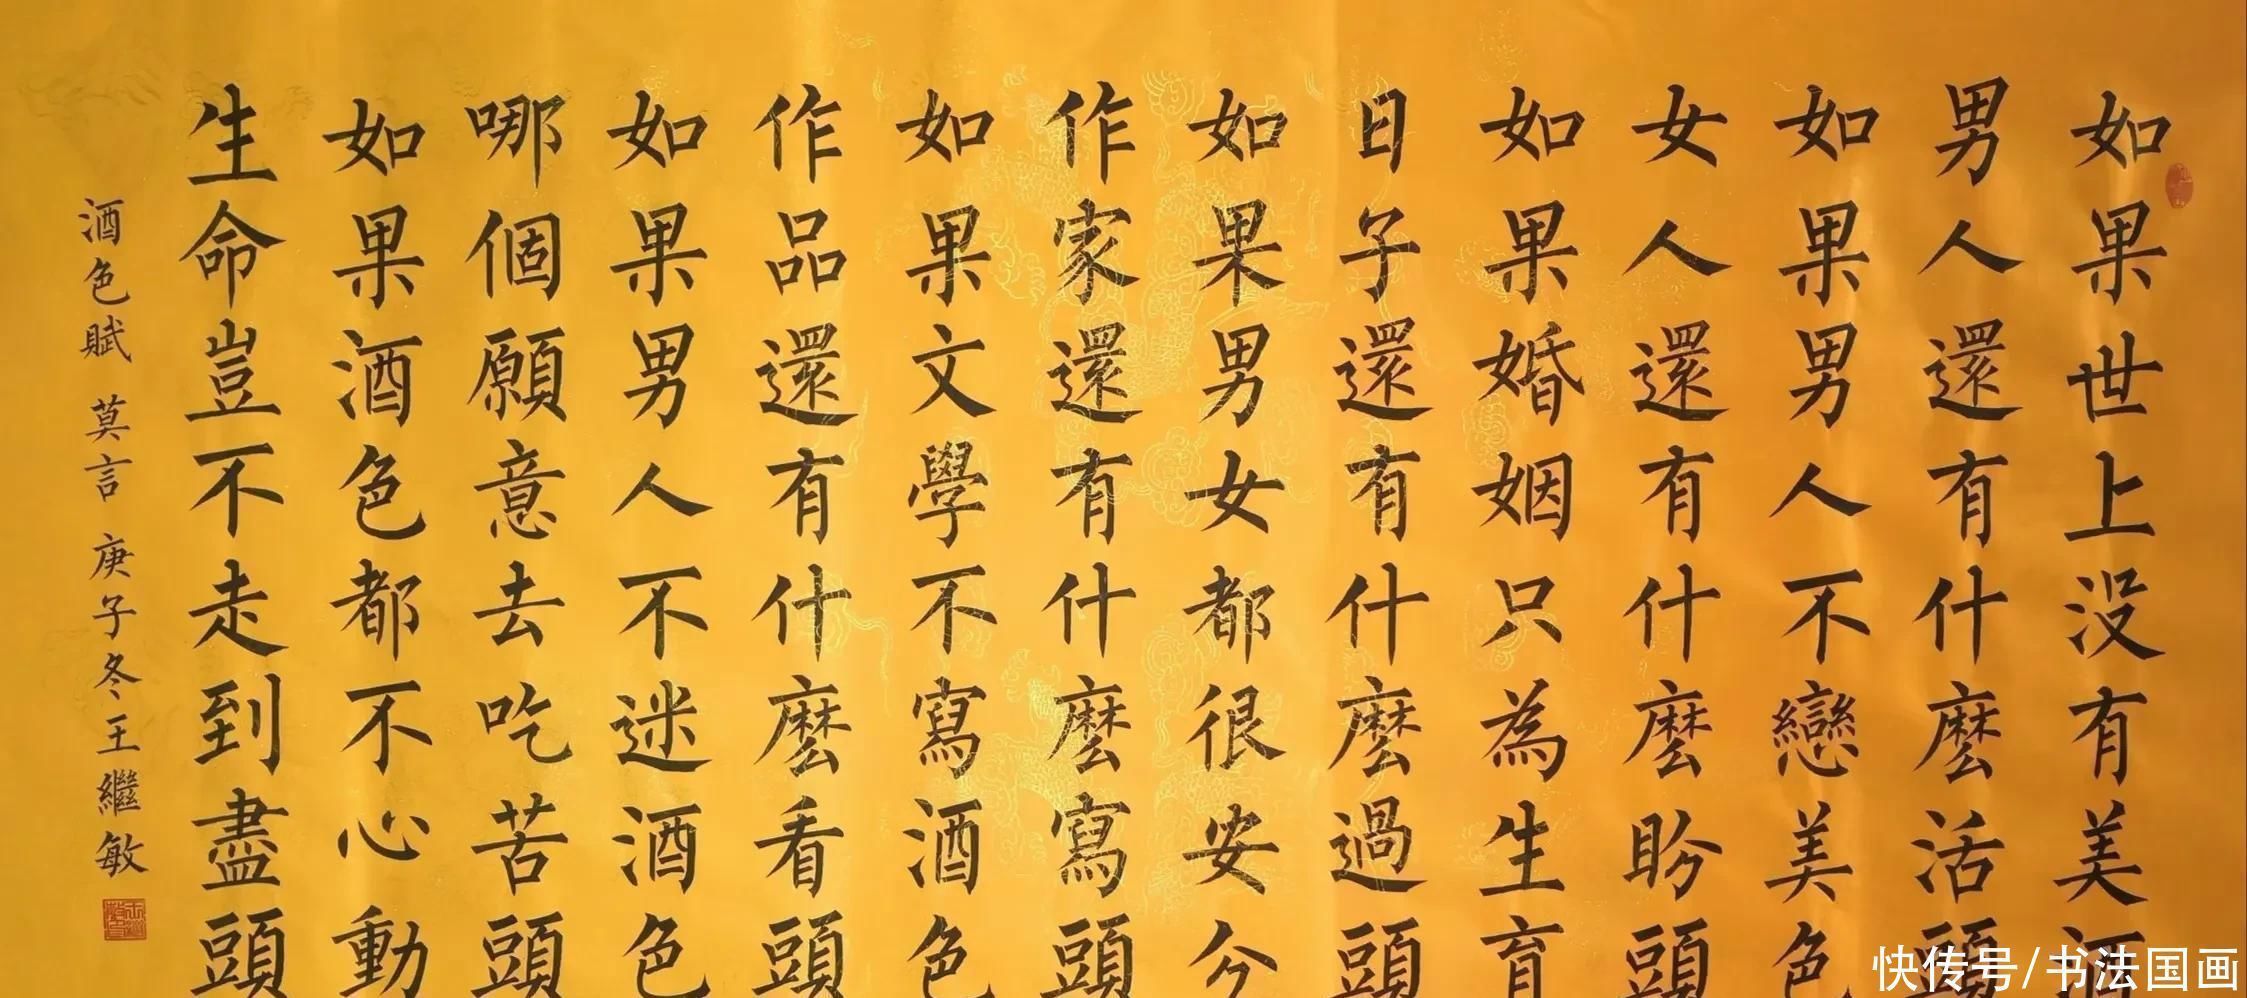 如果世上没有美酒
男人還有什麼活頭
如果男人不戀美色
女人還有什麼盼頭
如果婚姻只為生育
日子還有什麼過頭
如果男女都很安分
作家還有什麼寫頭
如果文學不寫酒色
作品還有什麼看頭
如果男人不迷酒色
哪個願意去吃苦頭
如果酒色都不心動
生命豈不走到盡頭
酒色賦 莫言 庚子冬王繼敏
快传号/书法国画